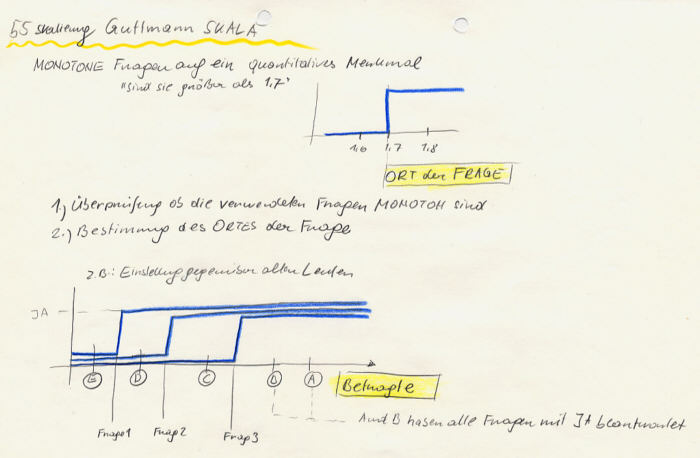 55 skalierung Guttmann SKALA
MONOTONE Fragen auf ein quantitatives Merkmal
"sind sie größer als 1,7"
1,6 1,7 1,8
ORT der FRAGE
1.) Überprüfung ob die verwendeten Fragen MONOTON sind
2.) Bestimmung des ORTES der Frage
z.B.: Einstellung gegenüber alten Leuten
JA
E D C B A
Befragte
A und B haben alle Fragen mit JA beantwortet
Frage 1 Frage 2 Frage 3